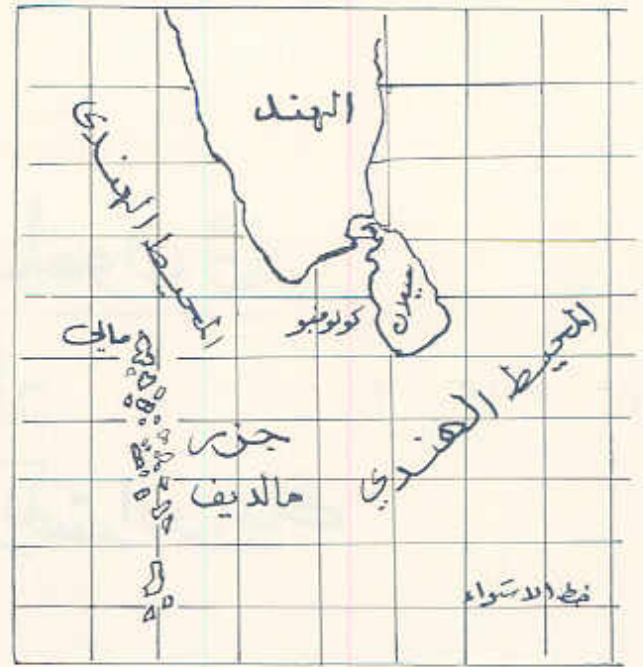 الهند
المحيط الهندي
سيلان
كولومبو
مالي
المحيط الهندي
جزر
مالديف
خط الاستواء